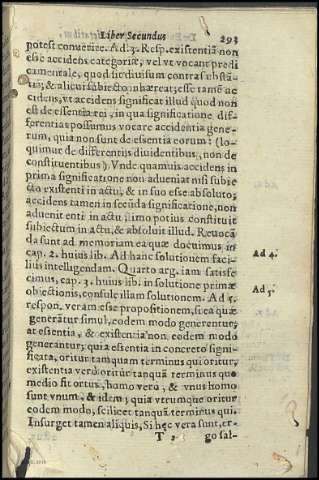 Liber Secundus 293
potest convenire. Ad. 3. Resp. existentiā non
esse accidens categoriæ, vel vt vocant predi
camentale, quod sic diuisum contra substā-
tiā; & alicui subiecto inhæreat; esse tamē ac
cidens, vt accidens significat illud quod non
est de essentia rei, in qua significatione dif-
ferentias possumus vocare accidentia gene-
rum, quia non sunt de essentia eorum: (lo-
quimur de differentijs diuidentibus, non de
constituentibus) Vnde quamuis accidens in
prima significatione non adueniat nisi subie
cto existenti in actu, & in suo esse absoluto;
accidens tamen in secūda significatione, non
aduenit enti in actu, imo potius constituit
subiectum in actu, & absoluit illud. Reuocā
da sunt ad memoriam ea quæ docuimus in
cap. 2. huius lib. Ad hanc solutionem faci-
lius intelligendam. Quarto arg. iam satisfe
Ad 4.
cimus, cap. 3. huius lib. in solutione primæ
obiectionis, consule illam solutionem. Ad 5.
Ad 5.
respon. veram esse propositionem, si ea quæ
generātur simul, eodem modo generentur;
at essentia, & existencia non eodem modo
generantur; quia essentia in concreto signi-
ficata, oritur tamquam terminus qui oritur,
existentia vero oritur tanquā terminus quo
medio fit ortus, homo vero, & vnus homo
sunt vnum, & idem; quia vterumque oritur
eodem modo, scilicet tanquā terminus qui.
Insurget tamen aliquis, Si hęc vera sunt, er-
T 3 go sal-